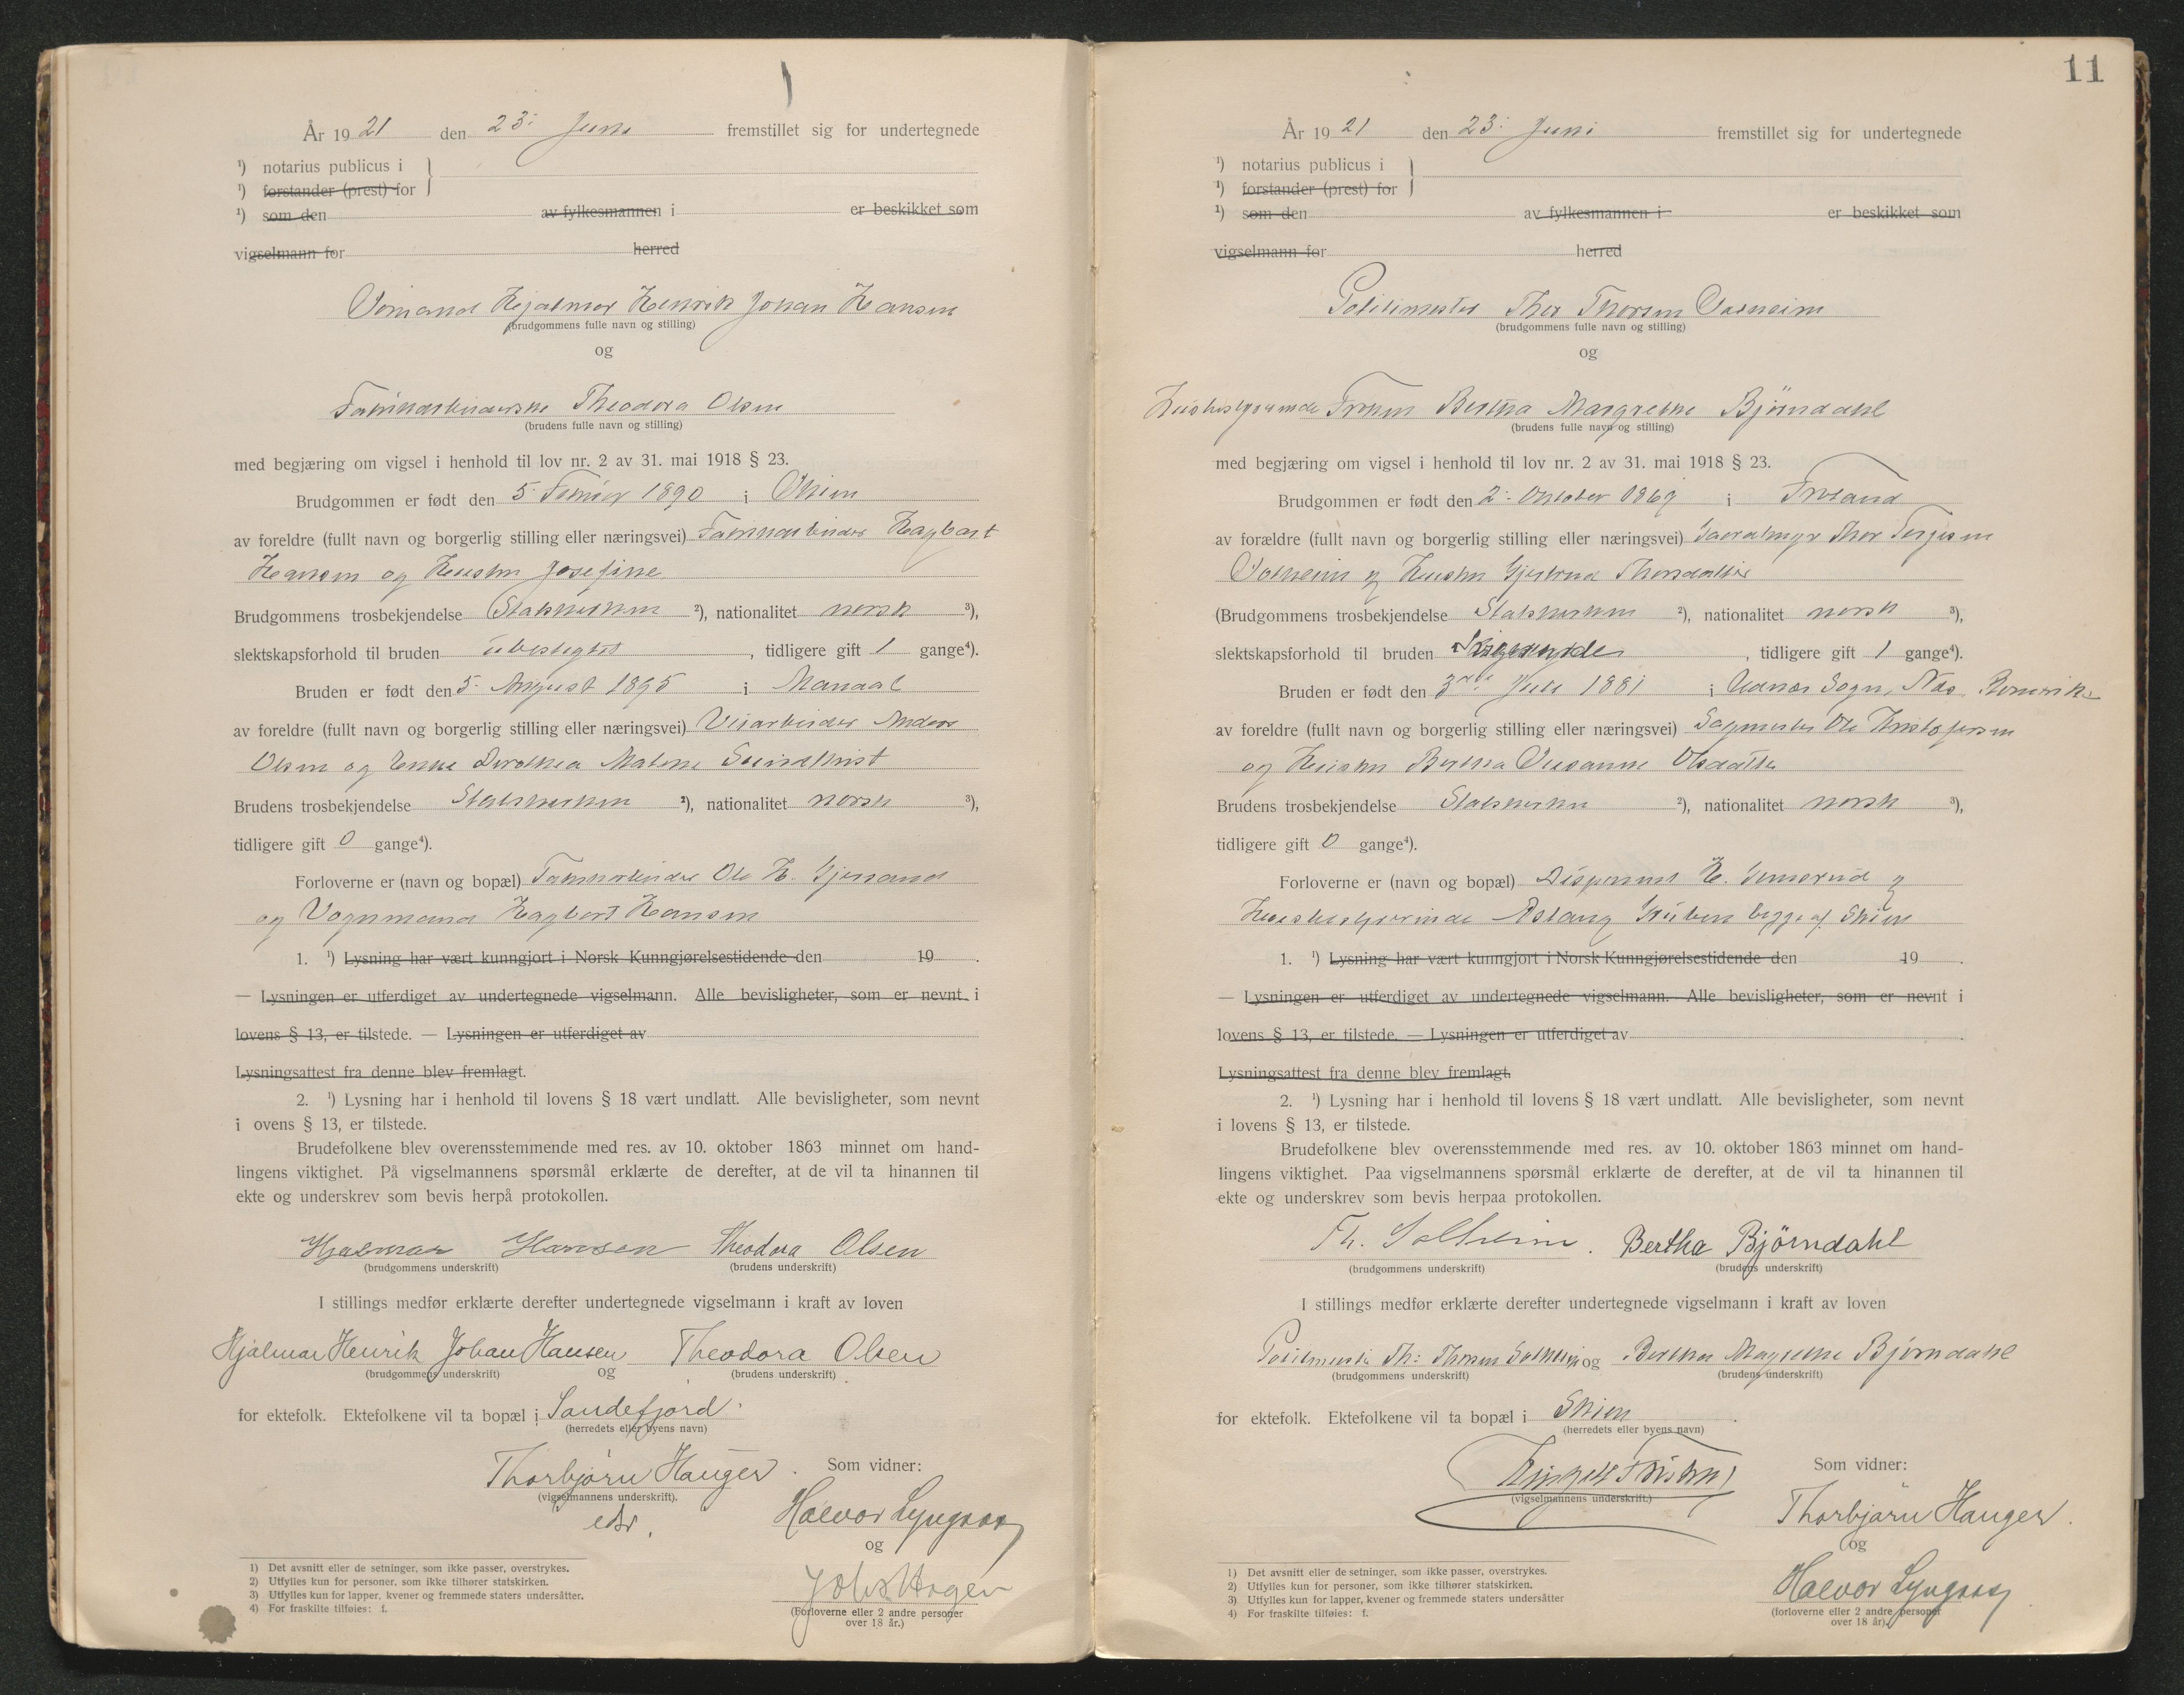 År 1921 den 23: Juni fremstillet sig for undertegnede
¹) notarius publicus i
¹) forstander (prest) for
¹) som den av fylkesmannen i er beskikket som
vigselmann for herred
Sømand Hjalmar Henrik Johan Hansen
(brudgommens fulle navn og stilling)
og
Fabrikarbeiderske Theodora Olsen
(brudens fulle navn og stilling)
med begjæring om vigsel i henhold til lov nr. 2 av 31. mai 1918 § 23.
Brudgommen er født den 5. Februar 1890 i Skien
av foreldre (fullt navn og borgerlig stilling eller næringsvei) Fabrikarbeider Hagbart
Hansen og Hustru Josefine
Brudgommens trosbekjendelse Statskirken ²), nationalitet norsk ³),
slektskapsforhold til bruden ubeslegtet, tidligere gift 1 gange⁴).
Bruden er født den 5. August 1895 i Mandal
av foreldre (fullt navn og borgerlig stilling eller næringsvei) Veiarbeider Anders
Olsen og Enke Dorothea Malene
Brudens trosbekjendelse Statskirken ²), nationalitet norsk ³),
tidligere gift 0 gange⁴).
Forloverne er (navn og bopæl) Fabrikarbeider Ole H.
og Vognmand Hagbart Hansen
1. ¹) Lysning har vært kunngjort i Norsk Kunngjørelsestidende den 19 .
— Lysningen er utferdiget av undertegnede vigselmann. Alle bevisligheter, som er nevnt i
lovens § 13, er tilstede. — Lysningen er utferdiget av
Lysningsattest fra denne blev fremlagt.
2. ¹) Lysning har i henhold til lovens § 18 vært undlatt. Alle bevisligheter, som nevnt
i ovens § 13, er tilstede.
Brudefolkene blev overensstemmende med res. av 10. oktober 1863 minnet om hand-
lingens viktighet. På vigselmannens spørsmål erklærte de derefter, at de vil ta hinannen til
ekte og underskrev som bevis herpå protokollen.
Hjalmar Hansen Theodora Olsen
(brudgommens underskrift) (brudens underskrift)
I stillings medfør erklærte derefter undertegnede vigselmann i kraft av loven
Hjalmar Henrik Johan Hansen og Theodora Olsen
(brudgommens underskrift) (brudens underskrift)
for ektefolk. Ektefolkene vil ta bopæl i Sandefjord.
(herredets eller byens navn)
Thorbjørn Hauger. Som vidner:
(vigselmannens underskrift).
edr.
Halvor Lyngaas
og
Johs Hagen
(Forloverne eller 2 andre personer
over 18 år.)
1) Det avsnitt eller de setninger, som ikke passer, overstrykes.
2) Utfylles kun for personer, som ikke tilhører statskirken.
3) Utfylles kun for lapper, kvener og fremmede staters undersåtter.
4) For fraskilte tilføies: f.
11
År 1921 den 23: Juni fremstillet sig for undertegnede
¹) notarius publicus i
¹) forstander (prest) for
¹) som den av fylkesmannen i er beskikket som
vigselmann for herred
Politimester Thor Thorsen Solheim
(brudgommens fulle navn og stilling)
og
Husbestyrerinde Frøken Bertha Margrethe Björndahl
(brudens fulle navn og stilling)
med begjæring om vigsel i henhold til lov nr. 2 av 31. mai 1918 § 23.
Brudgommen er født den 2: Oktober 1869 i Froland
av forældre (fullt navn og borgerlig stilling eller næringsvei) Gaardbruger Thor Terjesen
Solheim og Hustru Gjertrud Thorsdatter
(Brudgommens trosbekjendelse Statskirken ²), nationalitet norsk ³),
slektskapsforhold til bruden, tidligere gift 1 gange⁴).
Bruden er født den 3die Juli 1881 i Udnæs Sogn, Næs Romerike
av foreldre (fullt navn og borgerlig stilling eller næringsvei) Sagmester Ole Kristofersen
og Hustru Bertha Susanne Olsdatter
Brudens trosbekjendelse Statskirken ²), nationalitet norsk ³),
tidligere gift 0 gange⁴).
Forloverne er (navn og bopæl) Disponent H. og
Husbestyrerinde Aslaug begge af Skien
1. ¹) Lysning har vært kunngjort i Norsk Kunngjørelsestidende den 19 .
— Lysningen er utferdiget av undertegnede vigselmann. Alle bevisligheter, som er nevnt i
lovens § 13, er tilstede. — Lysningen er utferdiget av .
Lysningsattest fra denne blev fremlagt.
2. ¹) Lysning har i henhold til lovens § 18 vært undlatt. Alle bevisligheter, som nevnt
i lovens § 13, er tilstede.
Brudefolkene blev overensstemmende med res. av 10. oktober 1863 minnet om hand-
lingens viktighet. Paa vigselmannens spørsmål erklærte de derefter, at de vil ta hinannen til
ekte og underskrev som bevis herpaa protokollen.
Th. Solheim. Bertha Björndahl
(brudgommens underskrift) (brudens underskrift)
I stillings medfør erklærte derefter undertegnede vigselmann i kraft av loven
Politimester Th: Thorsen Solheim og Bertha Magrethe Björndahl
(brudgommens underskrift) (brudens underskrift)
for ektefolk. Ektefolkene vil ta bopæl i Skien.
(herredets eller byens navn)
Som vidner:
(vigselmannens underskrift.)
Thorbjørn Hauger.
og
Halvor Lyngaas
(forloverne eller 2 andre personer
over 18 år).
1) Det avsnitt eller de setninger, som ikke passer, overstrykes.
2) Utfylles kun for personer, som ikke tilhører statskirken.
3) Utfylles kun for lapper, kvener og fremmede staters undersåtter
4) For fraskilte tilføies: f.